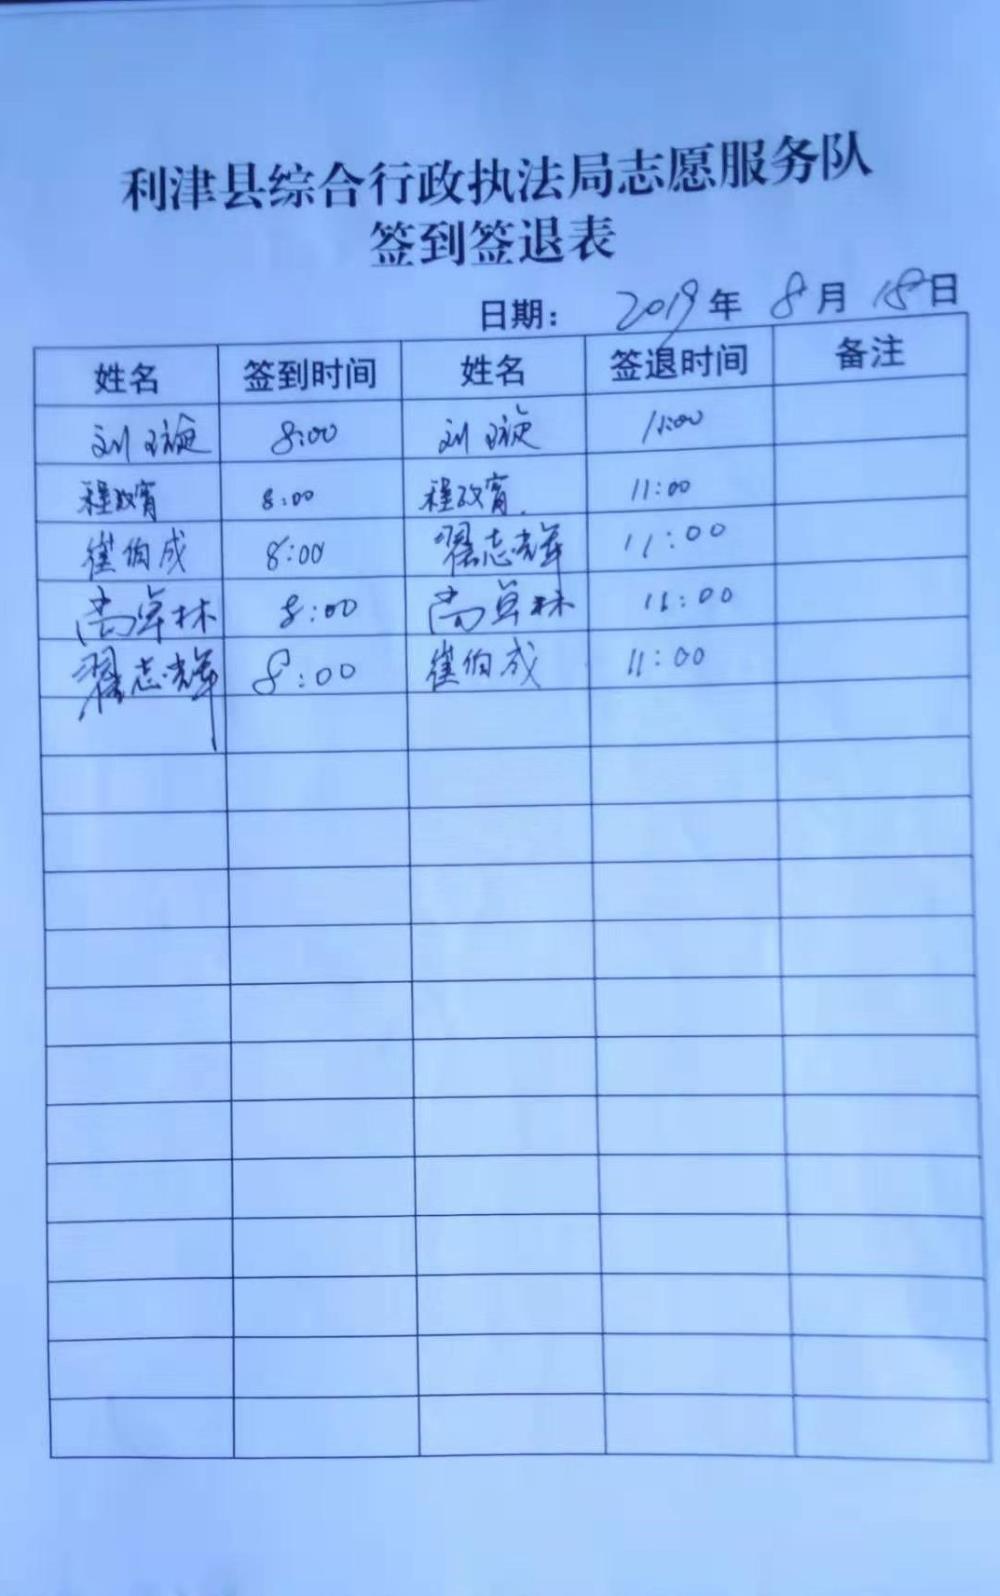 利津县综合行政执法局志愿服务队
签到签退表
日期： 2019 年 8 月 18 日
姓名 签到时间 姓名 签退时间 备注
刘 8:00 刘 11:00
程 8:00 程 11:00
崔伯成 8:00 翟志辉 11:00
尚卓林 8:00 尚卓林 11:00
翟志辉 8:00 崔伯成 11:00